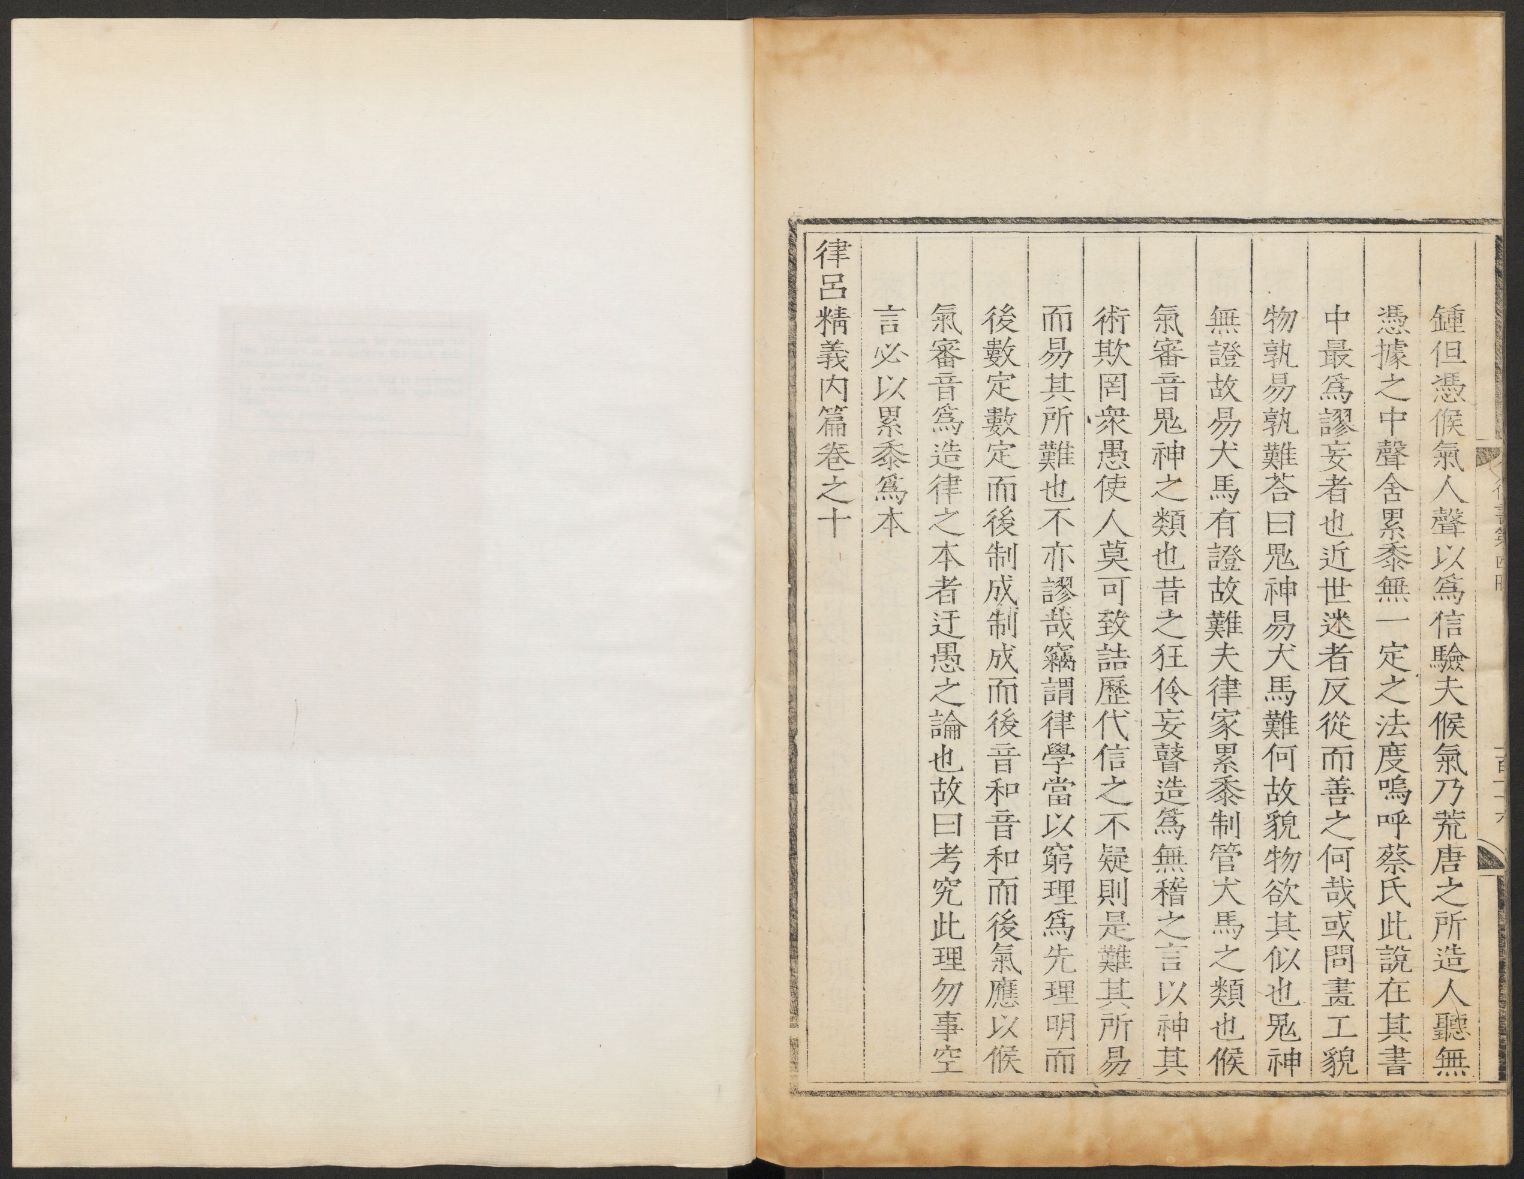 鍾但憑候氣人聲以爲信驗夫候氣乃荒唐之所造人聽無
憑據之中聲舍累黍無一定之法度嗚呼蔡氏此說在其書
中最爲謬妄者也近世迷者反從而善之何哉或問畫工貌
物孰易孰難荅曰鬼神易犬馬難何故貌物欲其似也鬼神
無證故易犬馬有證故難夫律家累黍制管犬馬之類也候
氣審音鬼神之類也昔之狂伶妄瞽造爲無稽之言以神其
術欺罔衆愚使人莫可致詰歷代信之不疑則是難其所易
而易其所難也不亦謬哉竊謂律學當以窮理爲先理明而
後數定數定而後制成制成而後音和音和而後氣應以候
氣審音爲造律之本者迂愚之論也故曰考究此理勿事空
言必以累黍爲本
律呂精義內篇卷之十